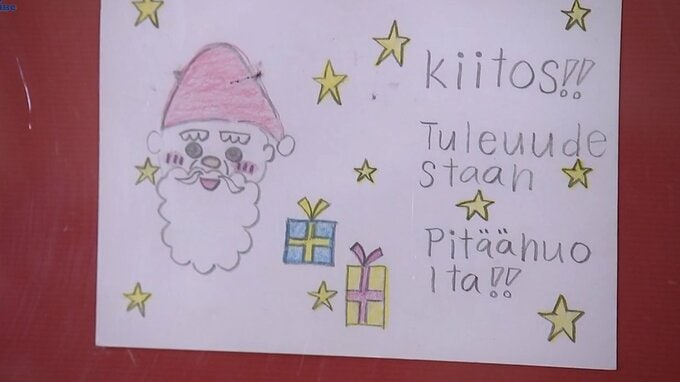 kiitos!!
Tuleuude
staan
Pitäähuo
lta!!